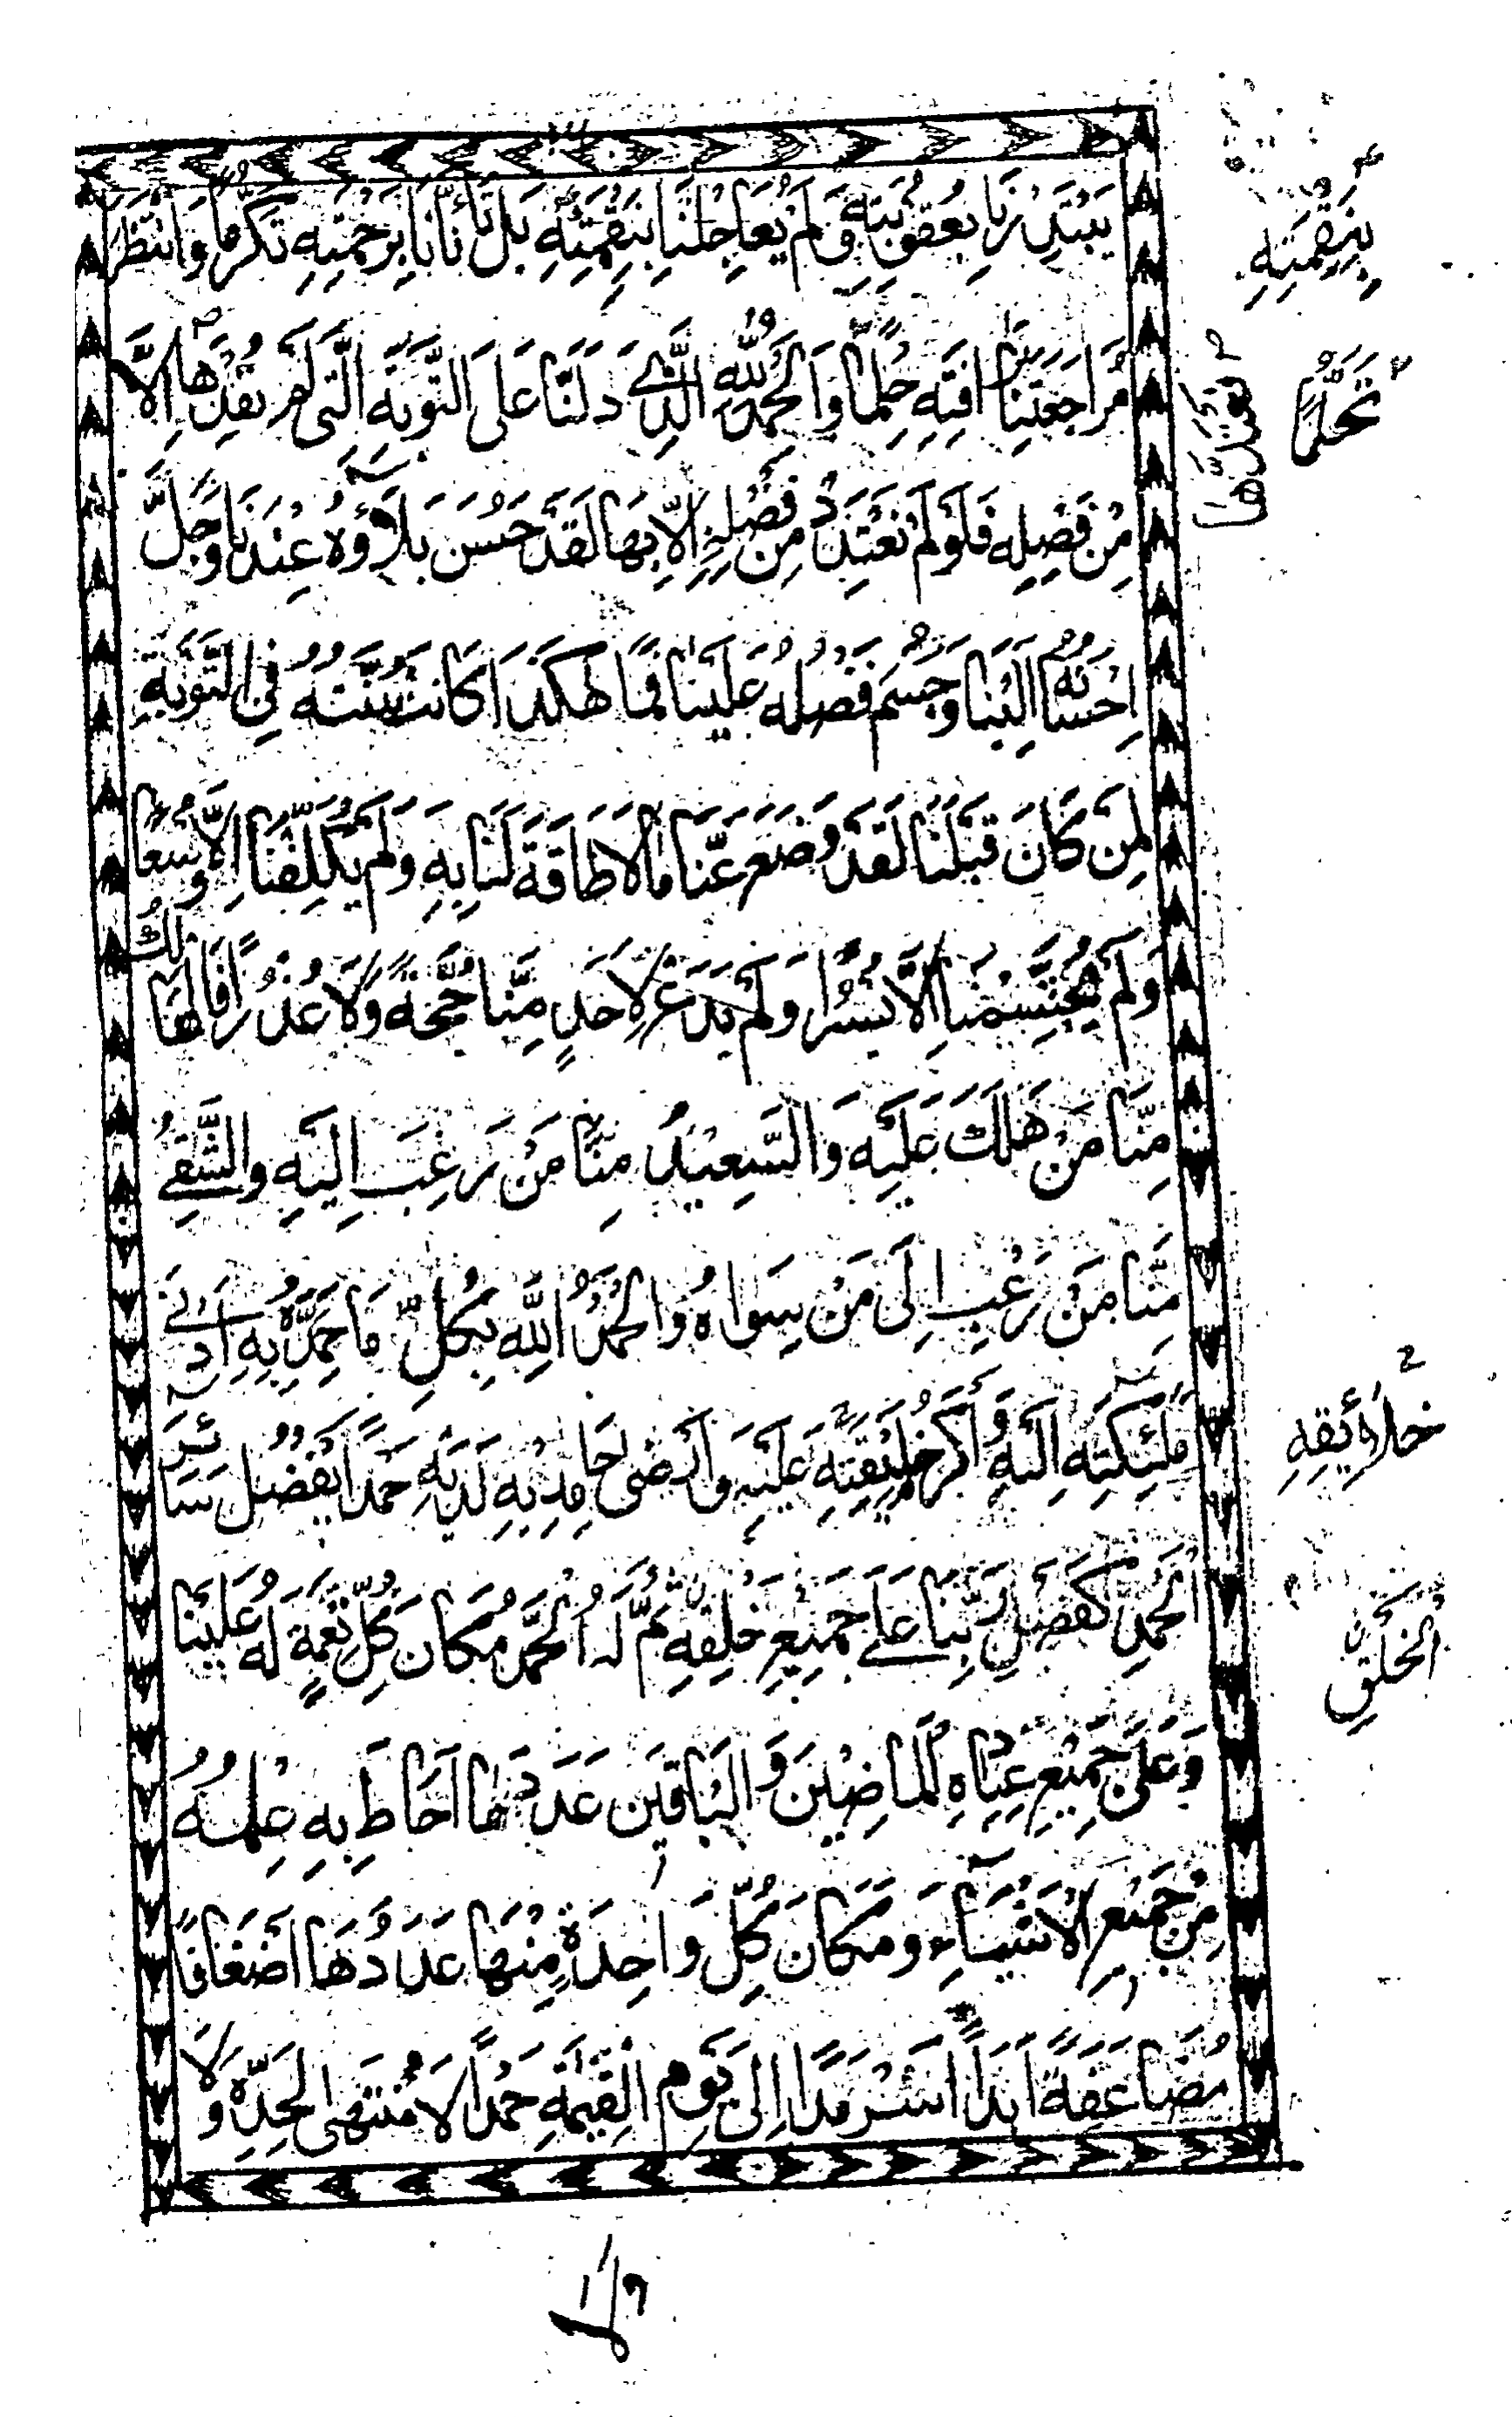 يَبْتَدِرْنَا بِعُقُوبَتِهِ وَلَمْ يُعَاجِلْنَا بِنِقْمَتِهِ بَلْ تَأَنَّانَا بِرَحْمَتِهِ تَكَرُّمًا وَانْتَظَرَ
مُرَاجَعَتَنَا بِرَأْفَتِهِ حِلْمًا وَالْحَمْدُ لِلّٰهِ الَّذِي دَلَّنَا عَلَى التَّوْبَةِ الَّتِي لَمْ نُفِدْهَا إِلَّا
مِنْ فَضْلِهِ فَلَوْ لَمْ نَعْتَدِدْ مِنْ فَضْلِهِ إِلَّا بِهَا لَقَدْ حَسُنَ بَلَاؤُهُ عِنْدَنَا وَجَلَّ
إِحْسَانُهُ إِلَيْنَا وَجَسُمَ فَضْلُهُ عَلَيْنَا فَمَا هٰكَذَا كَانَتْ سُنَّتُهُ فِي التَّوْبَةِ
لِمَنْ كَانَ قَبْلَنَا لَقَدْ وَضَعَ عَنَّا مَا لَا طَاقَةَ لَنَا بِهِ وَلَمْ يُكَلِّفْنَا إِلَّا وُسْعًا
وَلَمْ يُجَشِّمْنَا إِلَّا يُسْرًا وَلَمْ يَدَعْ لِأَحَدٍ مِنَّا حُجَّةً وَلَا عُذْرًا فَالْهَالِكُ
مِنَّا مَنْ هَلَكَ عَلَيْهِ وَالسَّعِيدُ مِنَّا مَنْ رَغِبَ إِلَيْهِ وَالشَّقِيُّ
مِنَّا مَنْ رَغِبَ إِلَى مَنْ سِوَاهُ وَالْحَمْدُ لِلّٰهِ بِكُلِّ مَا حَمِدَهُ بِهِ أَدْنَى
مَلٰئِكَتِهِ إِلَيْهِ وَأَكْرَمُ خَلِيقَتِهِ عَلَيْهِ وَأَرْضَى حَامِدِيهِ لَدَيْهِ حَمْدًا يَفْضُلُ سَائِرَ
الْحَمْدِ كَفَضْلِ رَبِّنَا عَلَى جَمِيعِ خَلْقِهِ ثُمَّ لَهُ الْحَمْدُ مَكَانَ كُلِّ نِعْمَةٍ لَهُ عَلَيْنَا
وَعَلَى جَمِيعِ عِبَادِهِ الْمَاضِينَ وَالْبَاقِينَ عَدَدَ مَا أَحَاطَ بِهِ عِلْمُهُ
مِنْ جَمِيعِ الْأَشْيَاءِ وَمَكَانَ كُلِّ وَاحِدَةٍ مِنْهَا عَدَدُهَا أَضْعَافًا
مُضَاعَفَةً أَبَدًا سَرْمَدًا إِلَى يَوْمِ الْقِيٰمَةِ حَمْدًا لَا مُنْتَهَى لِحَدِّهِ وَلَا
بِنِقْمَتِهِ
خَلَائِقِهِ
الْخَلْقِ